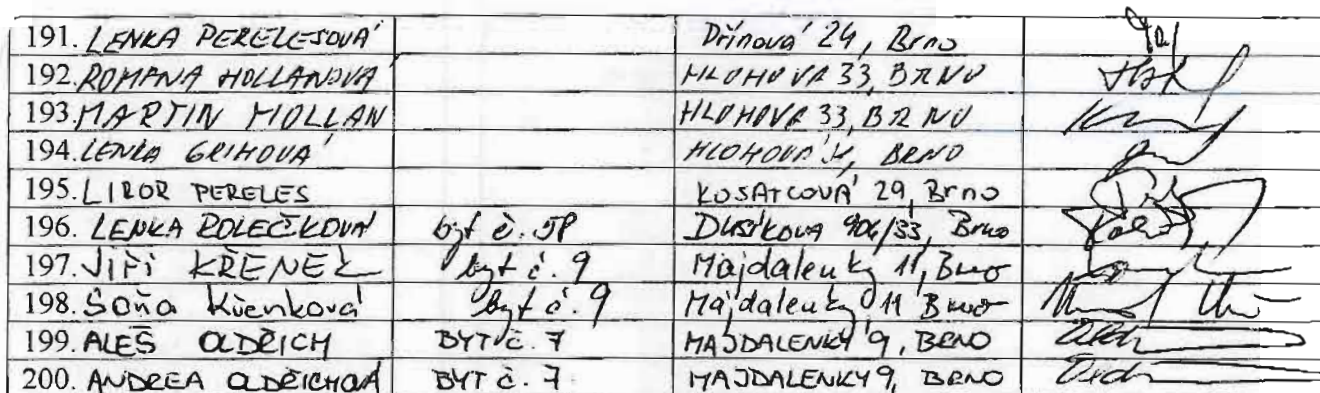 191. LENKA PERELESOVÁ Dřínová 24, Brno
192. ROMANA HOLLANOVÁ HLOHOVÁ 33, BRNO
193. MARTIN HOLLAN HLOHOVÁ 33, BRNO
194. LENKA GRIHOVÁ HLOHOVÁ BRNO
195. LIBOR PERELES KOSATCOVÁ 29, Brno
196. LENKA ROLEČKOVÁ byt č. DUSÍKOVA 906/33, Brno
197. JIŘÍ KŘENEK byt č. 9 Majdalenky 11, Brno
198. Soňa Křenková byt č. 9 Majdalenky 11 Brno
199. ALEŠ OLDŘICH BYT č. 7 MAJDALENKY 9, BRNO
200. ANDREA OLDŘICHOVÁ BYT č. 7 MAJDALENKY 9, BRNO